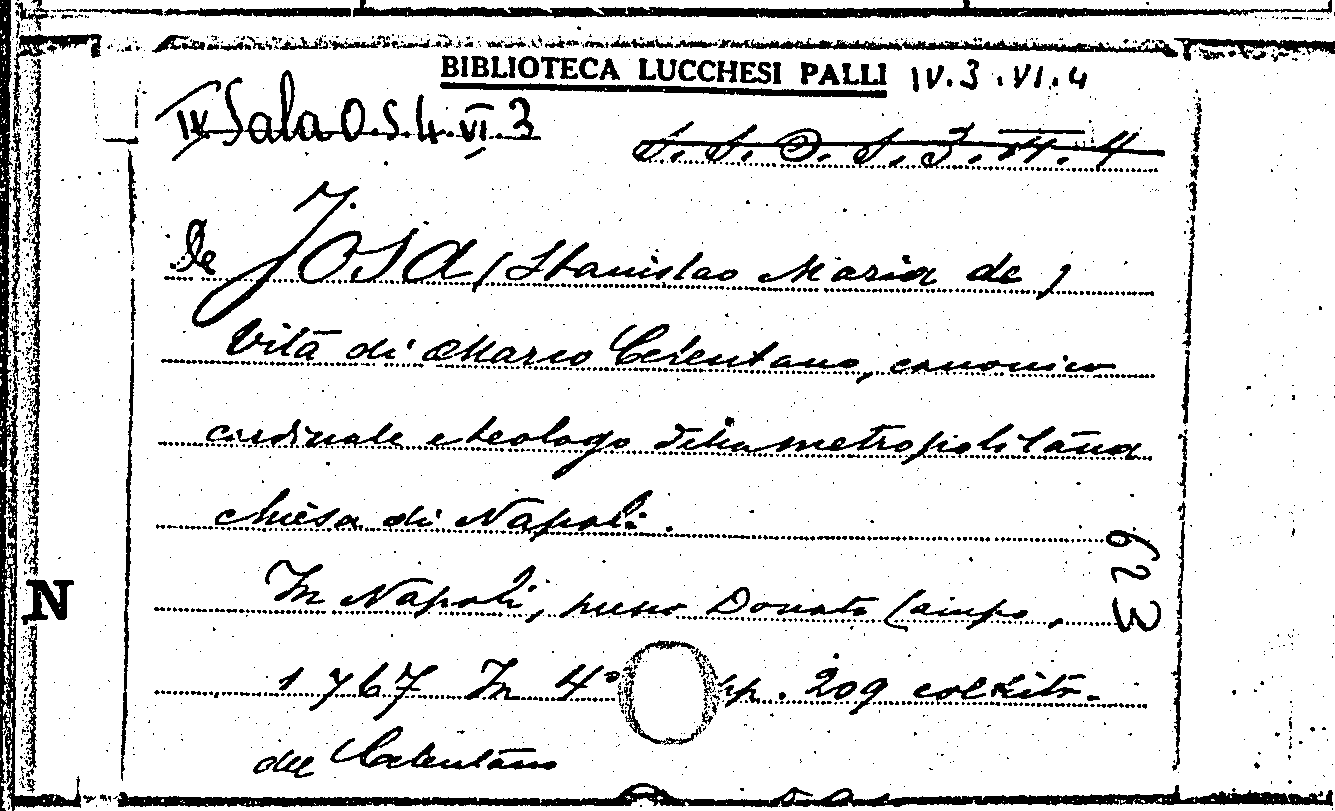 BIBLIOTECA LUCCHESI PALLI IV.3.VI.4
IV Sala O.S.4.VI.3
S. S. O. S. 3. VI. 4
De Josa (Stanislao Maria de)
Vita di Marco Celentano, canonico
cardinale e teologo della metropolitana
chiesa di Napoli.
623
In Napoli, presso Donato Campo,
N
1767 In 4° pp. 209 col ritr.
del Celentano